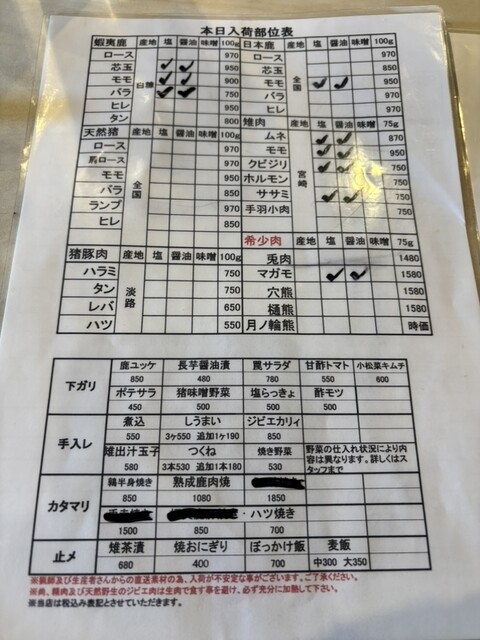 本日入荷部位表
蝦夷鹿 産地 塩 醤油 味噌 100g
ロース 970
芯玉 ✓ ✓ 950
モモ ✓ ✓ 900
バラ ✓ ✓ 750
ヒレ 950
タン 800
天然猪 産地 塩 醤油 味噌 100g
全国
ロース 970
肩ロース 970
モモ 950
バラ 850
ランプ 970
ヒレ 850
猪豚肉 産地 塩 醤油 味噌 100g
淡路
ハラミ 750
タン 750
レバ 650
ハツ 550
日本鹿 産地 塩 醤油 味噌 100g
全国
ロース 970
芯玉 850
モモ ✓ ✓ 950
バラ 750
ヒレ 970
雉肉 産地 塩 醤油 味噌 100g
宮崎
ムネ ✓ ✓ 870
モモ ✓ ✓ 950
クビジリ ✓ ✓ 750
ホルモン 750
ササミ ✓ ✓ 750
手羽小肉 750
希少肉 産地 塩 醤油 味噌 75g
兎肉 1480
マガモ ✓ ✓ 1580
穴熊 1580
樋熊 1580
月ノ輪熊 時価
下ガリ
鹿ユッケ 長芋醤油漬 罠サラダ 甘酢トマト 小松菜キムチ
850 480 780 550 600
ポテサラ 猪味噌野菜 塩らっきょ 酢モツ
450 500 500 500
手入レ
煮込 しうまい ジビエカリィ
550 3ヶ550 追加1ヶ190 850
雉出汁玉子 つくね 焼き野菜 野菜の仕入れ状況により内容は異なります。詳しくはスタッフまで
580 3本530 追加1本180 530
カタマリ
鶉半身焼き 熟成鹿肉焼
850 1080 1850
・ハツ焼き
1500 850 700
止メ
雉茶漬 焼おにぎり ぼっかけ飯 麦飯
680 400 700 中300 大350
※猟師及び生産者さんからの直送素材の為、入荷が不安定な事がございます。ご了承ください。
※尚、精肉及び天然野生のジビエ肉は生肉で食す事を避け、必ず充分に加熱して下さい。
※当店は税込み表記とさせていただきます。